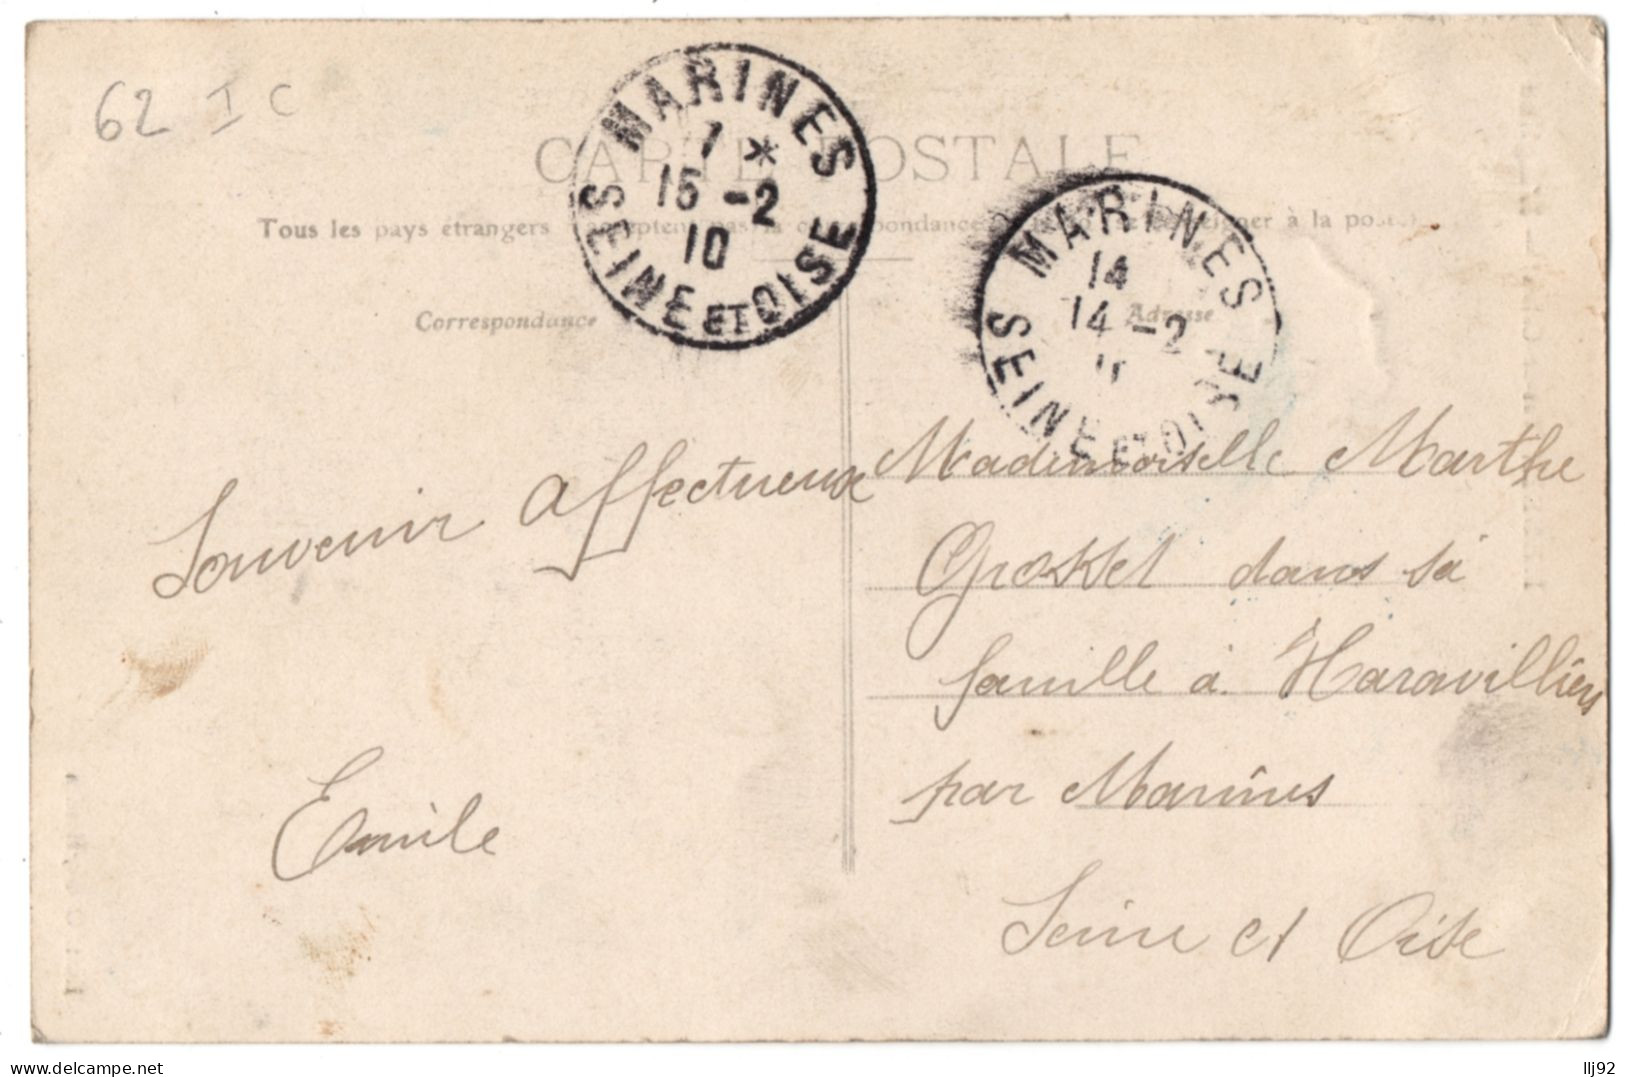 62 I C
CARTE POSTALE
Tous les pays étrangers n'acceptent pas la correspondance se renseigner à la poste
MARINES
7 *
15 -2
10
SEINE ET OISE
MARINES
14
14 -2
SEINE ET OISE
Correspondance
Adresse
Souvenir affectueux
Emile
Mademoiselle Marthe
Grosset dans sa
famille à Haravilliers
par Marines
Seine et Oise
llj92